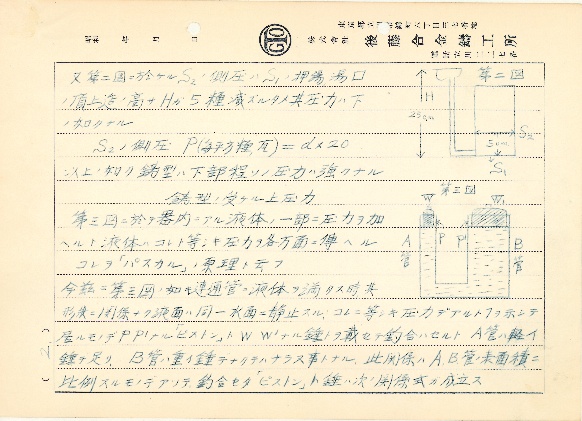 昭和 年 月 日
GTO
株式会社 後藤合金鋳工所
又第二図ニ於ケルS₂ノ側圧ハS₁ノ押湯湯口
ノ頂上迄ノ高サHガ5糎減ズルタメ其圧力ハ下
ノ如クナル
S₂ノ側圧 P(毎平方糎瓦)=d×20
以上ノ如ク鋳型ハ下部程ソノ圧力ハ強クナル
鋳型ノ受ケル上圧力
第三図ニ於テ器内ニアル液体ノ一部ニ圧力ヲ加
ヘルト液体ハコレト等シキ圧力ヲ各方面ニ傳ヘル
コレヲ「パスカル」ノ原理ト云フ
今玆ニ第三図ノ如キ連通管ニ液体ヲ満タス時ハ
形状ニ関係ナク液面ハ同一水面ニ静止スル、コレニ等シキ圧力デアル
居ルモノデPP'ナル「ピストン」ト W W'ナル錘トヲ載セテ釣合ハセルト A管ハ軽イ
錘デ足リ B管ハ重イ錘デナクテハナラヌ事トナル、此関係ハA,B管ノ末面積ニ
比例スルモノデアツテ釣合セタ「ピストン」ト錘ハ次ノ関係式ガ成立ス
第二図
H
25cm
S₂
5cm
S₁
第三図
W
W'
P
P'
A管
B管
(2)